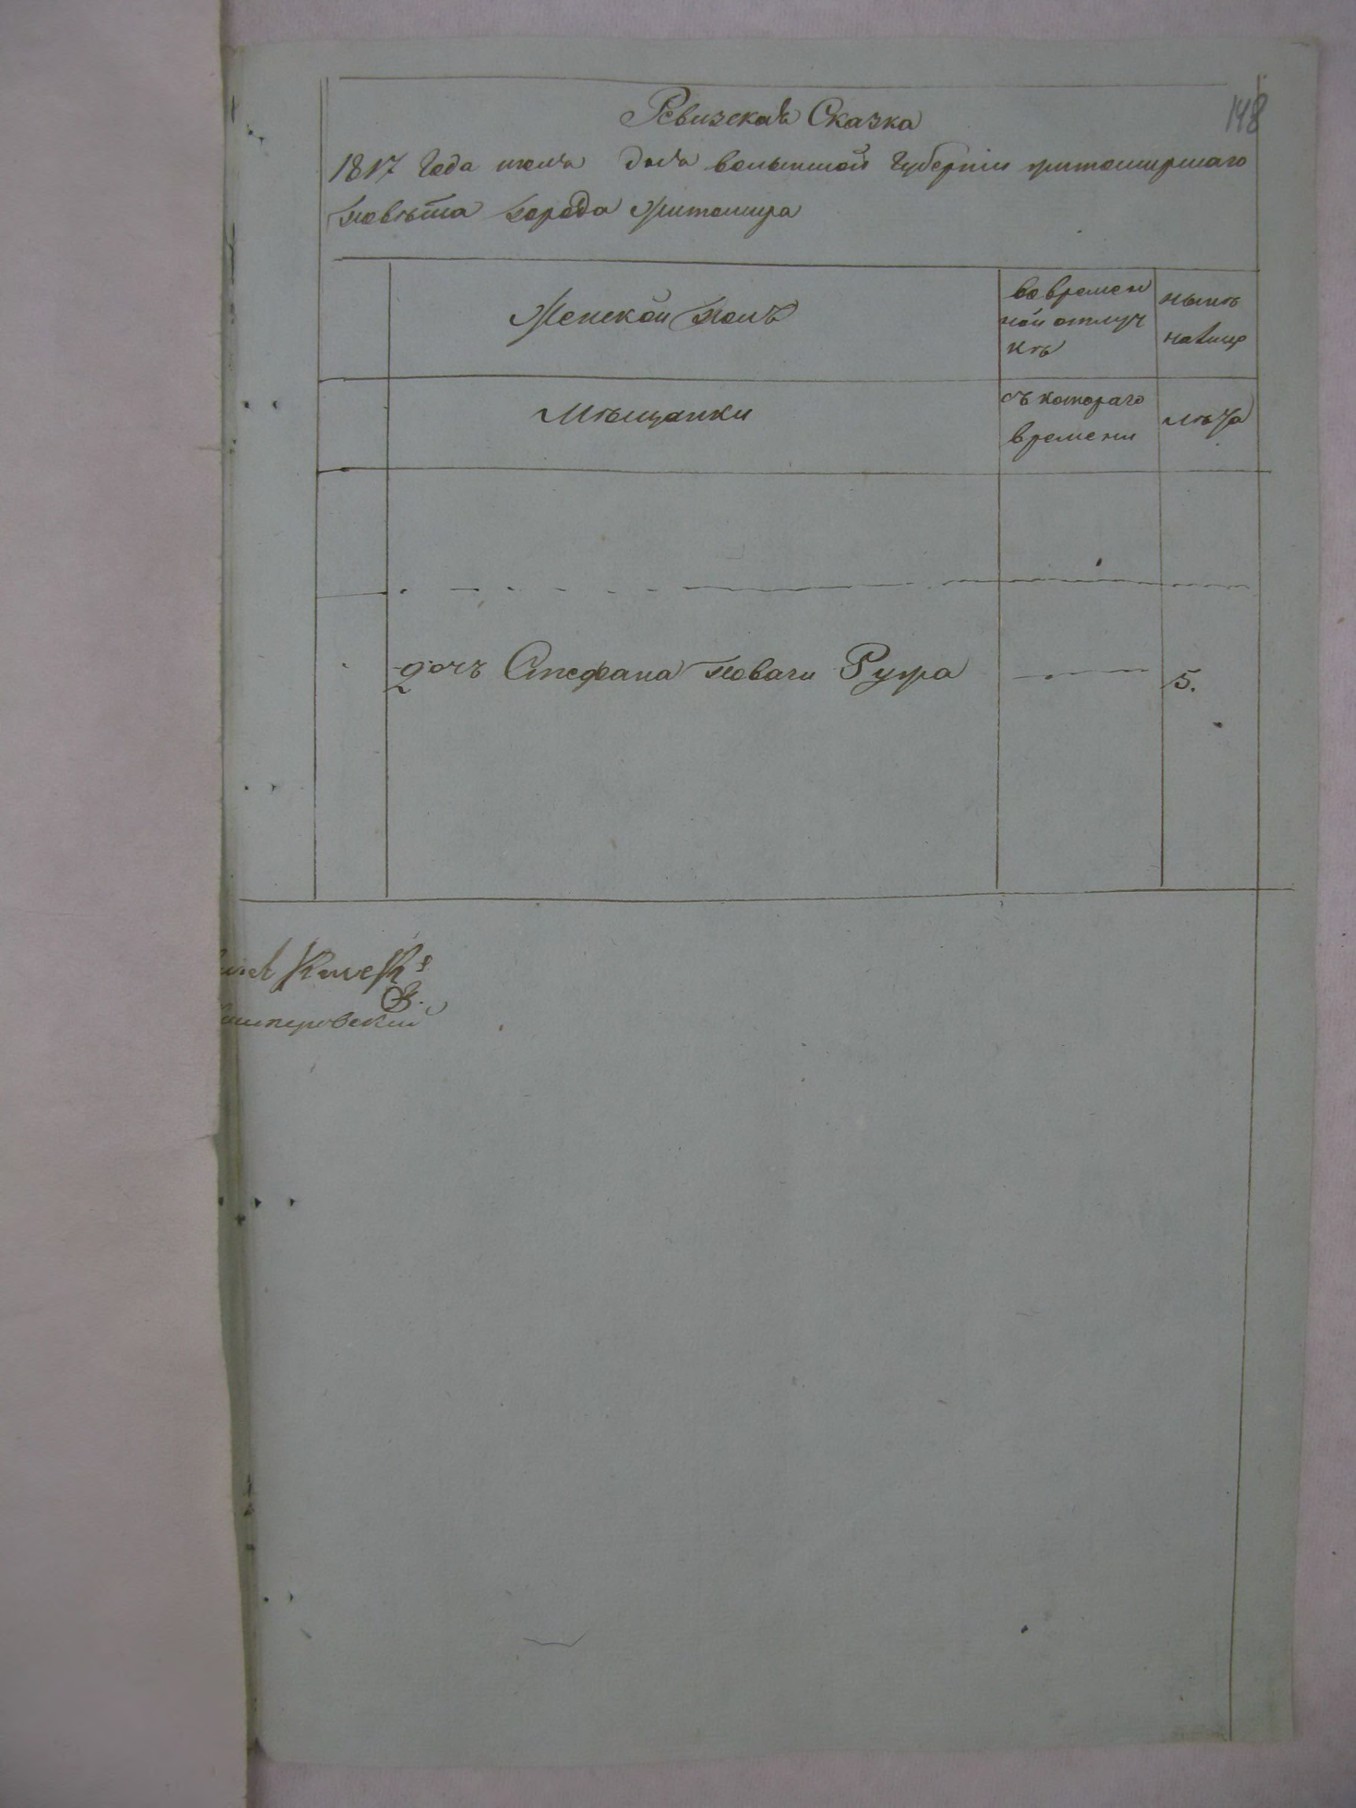 148
Ревизская Сказка
1817 Года июля дня волынской Губернии житомирскаго
повѣта города Житомира
Женской полъ
во времен
ной отлуч
кѣ
нынѣ
на лицо
Мѣщанки
съ котораго
времени
лѣта
дочъ Стефана Ружа
5.